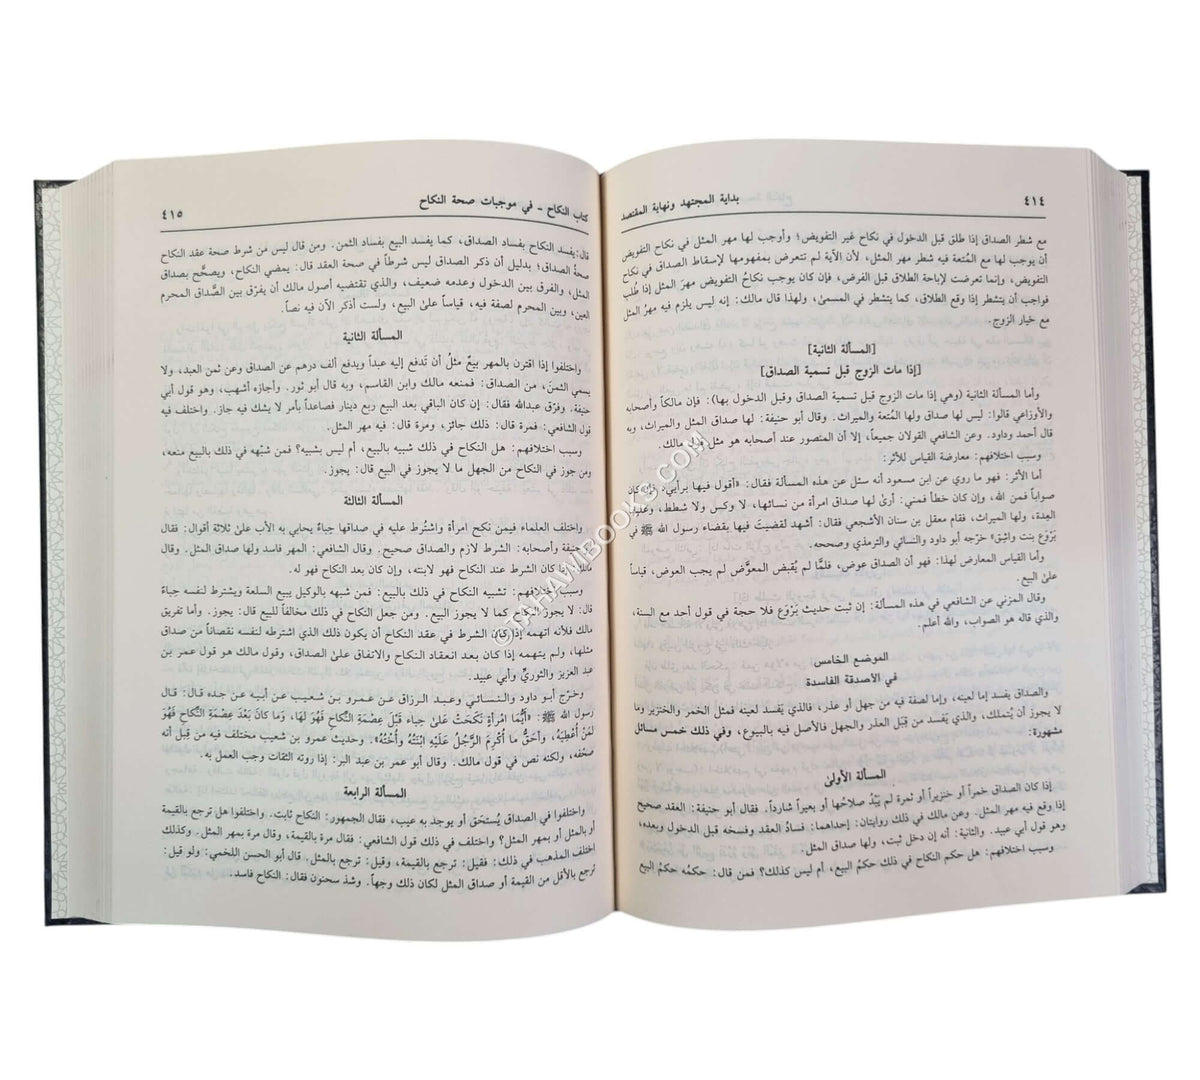 ٤١٤
بداية المجتهد ونهاية المقتصد
مع شطر الصداق إذا طلق قبل الدخول في نكاح غير التفويض؛ وأوجب لها مهر المثل في نكاح التفويض
أن يوجب لها مع المُتعة فيه شطر مهر المثل، لأن الآية لم تتعرض بمفهومها لإسقاط الصداق في نكاح
التفويض، وإنما تعرضت لإباحة الطلاق قبل الفرض، فإن كان يوجب نكاحُ التفويض مهرَ المثل إذا طُلب
فواجب أن يتشطر إذا وقع الطلاق، كما يتشطر في المسمىٰ، ولهذا قال مالك: إنه ليس يلزم فيه مهرُ المثل
مع خيار الزوج.
[المسألة الثانية]
[إذا مات الزوج قبل تسمية الصداق]
وأما المسألة الثانية (وهي إذا مات الزوج قبل تسمية الصداق وقبل الدخول بها): فإن مالكاً وأصحابه
والأوزاعي قالوا: ليس لها صداق ولها المُتعة والميراث. وقال أبو حنيفة: لها صداق المثل والميراث، وبه
قال أحمد وداود. وعن الشافعي القولان جميعاً، إلا أن المنصور عند أصحابه هو مثل قول مالك.
وسبب اختلافهم: معارضة القياس للأثر:
أما الأثر: فهو ما روي عن ابن مسعود أنه سئل عن هذه المسألة فقال: «أقول فيها برأيي، فإن كان
صواباً فمن الله، وإن كان خطأ فمني: أرىٰ لها صداق امرأة من نسائها، لا وكس ولا شطط، وعليها
العِدة، ولها الميراث، فقام معقل بن سنان الأشجعي فقال: أشهد لقضيتَ فيها بقضاء رسول الله ﷺ في
بَرْوَع بنت واشِق» خرّجه أبو داود والنسائي والترمذي وصححه.
وأما القياس المعارض لهذا: فهو أن الصداق عوض، فلمَّا لم يُقبض المعوَّض لم يجب العوض، قياساً
علىٰ البيع.
وقال المزني عن الشافعي في هذه المسألة: إن ثبت حديث بَرْوَع فلا حجة في قول أحد مع السنة،
والذي قاله هو الصواب، والله أعلم.
الموضع الخامس
في الأصدقة الفاسدة
والصداق يفسد إما لعينه، وإما لصفة فيه من جهل أو عذر، فالذي يَفسد لعينه فمثل الخمر والخنزير وما
لا يجوز أن يُتملك، والذي يَفسد من قِبَل العذر والجهل فالأصل فيه بالبيوع، وفي ذلك خمس مسائل
مشهورة:
المسألة الأولىٰ
إذا كان الصداق خمراً أو خنزيراً أو ثمرة لم يَبْدُ صلاحُها أو بعيراً شارداً. فقال أبو حنيفة: العقد صحيح
إذا وقع فيه مهر المثل. وعن مالك في ذلك روايتان: إحداهما: فسادُ العقد وفسخه قبل الدخول وبعده،
وهو قول أبي عبيد. والثانية: أنه إن دخل ثبت، ولها صداق المثل.
وسبب اختلافهم: هل حكم النكاح في ذلك حكمُ البيع، أم ليس كذلك؟ فمن قال: حكمُه حكمُ البيع
كتاب النكاح - في موجبات صحة النكاح
٤١٥
قال: يفسد النكاح بفساد الصداق، كما يفسد البيع بفساد الثمن. ومن قال ليس من شرط صحة عقد النكاح
صحةُ الصداق؛ بدليل أن ذكر الصداق ليس شرطاً في صحة العقد قال: يمضي النكاح، ويصحَّح بصداق
المثل، والفرق بين الدخول وعدمه ضعيف، والذي تقتضيه أصول مالك أن يفرّق بين الصَّداق المحرم
العين، وبين المحرم لصفة فيه، قياساً علىٰ البيع، ولست أذكر الآن فيه نصاً.
المسألة الثانية
واختلفوا إذا اقترن بالمهر بيعٌ مثلُ أن تَدفع إليه عبداً ويدفع ألف درهم عن الصداق وعن ثمن العبد، ولا
يسمي الثمنَ، من الصداق: فمنعه مالك وابن القاسم، وبه قال أبو ثور. وأجازه أشهب، وهو قول أبي
حنيفة. وفرّق عبدالله فقال: إن كان الباقي بعد البيع ربع دينار فصاعداً بأمر لا يشك فيه جاز. واختلف فيه
قول الشافعي: فمرة قال: ذلك جائز، ومرة قال: فيه مهر المثل.
وسبب اختلافهم: هل النكاح في ذلك شبيه بالبيع، أم ليس بشبيه؟ فمن شبّهه في ذلك بالبيع منعه،
ومن جوز في النكاح من الجهل ما لا يجوز في البيع قال: يجوز.
المسألة الثالثة
واختلف العلماء فيمن نكح امرأة واشتُرط عليه في صداقها حِباءٌ يحابي به الأب علىٰ ثلاثة أقوال: فقال
حنيفة وأصحابه: الشرط لازم والصداق صحيح. وقال الشافعي: المهر فاسد ولها صداق المثل. وقال
إذا كان الشرط عند النكاح فهو لابنته، وإن كان بعد النكاح فهو له.
وسبب اختلافهم: تشبيه النكاح في ذلك بالبيع: فمن شبهه بالوكيل يبيع السلعة ويشترط لنفسه حِباءً
قال: لا يجوز النكاح كما لا يجوز البيع. ومن جعل النكاح في ذلك مخالفاً للبيع قال: يجوز. وأما تفريق
مالك فلأنه اتهمه إذا كان الشرط في عقد النكاح أن يكون ذلك الذي اشترطه لنفسه نقصاناً من صداق
مثلها، ولم يتهمه إذا كان بعد انعقاد النكاح والاتفاق علىٰ الصداق، وقول مالك هو قول عمر بن
عبد العزيز والثوريِّ وأبي عبيد.
وخرّج أبو داود والنسائي وعبد الرزاق عن عمرو بن شعيب عن أبيه عن جده قال: قال
رسول الله ﷺ: «أَيُّمَا امْرَأَةٍ نَكَحَتْ عَلَىٰ حِباءٍ قَبْلَ عِصْمَةِ النِّكاحِ فَهُوَ لَهَا، وَمَا كَانَ بَعْدَ عِصْمَةِ النِّكَاحِ فَهُوَ
لِمَنْ أُعْطِيَهُ، وأحَقُّ ما أُكْرِمَ الرَّجُلُ عَلَيْهِ ابْنَتُهُ وأُخْتُهُ». وحديث عمرو بن شعيب مختلف فيه من قِبل أنه
صحُفه، ولكنه نص في قول مالك. وقال أبو عمر بن عبد البر: إذا روته الثقات وجب العمل به.
المسألة الرابعة
واختلفوا في الصداق يُستَحَق أو يوجد به عيب، فقال الجمهور: النكاح ثابت. واختلفوا هل ترجع بالقيمة
أو بالمثل أو بمهر المثل؟ واختلف في ذلك قول الشافعي: فقال مرة بالقيمة، وقال مرة بمهر المثل. وكذلك
اختلف المذهب في ذلك: فقيل: ترجع بالقيمة، وقيل: ترجع بالمثل. قال أبو الحسن اللخمي: ولو قيل:
ترجع بالأقل من القيمة أو صداق المثل لكان ذلك وجهاً. وشذ سحنون فقال: النكاح فاسد.
TAHAWIBOOKS.COM